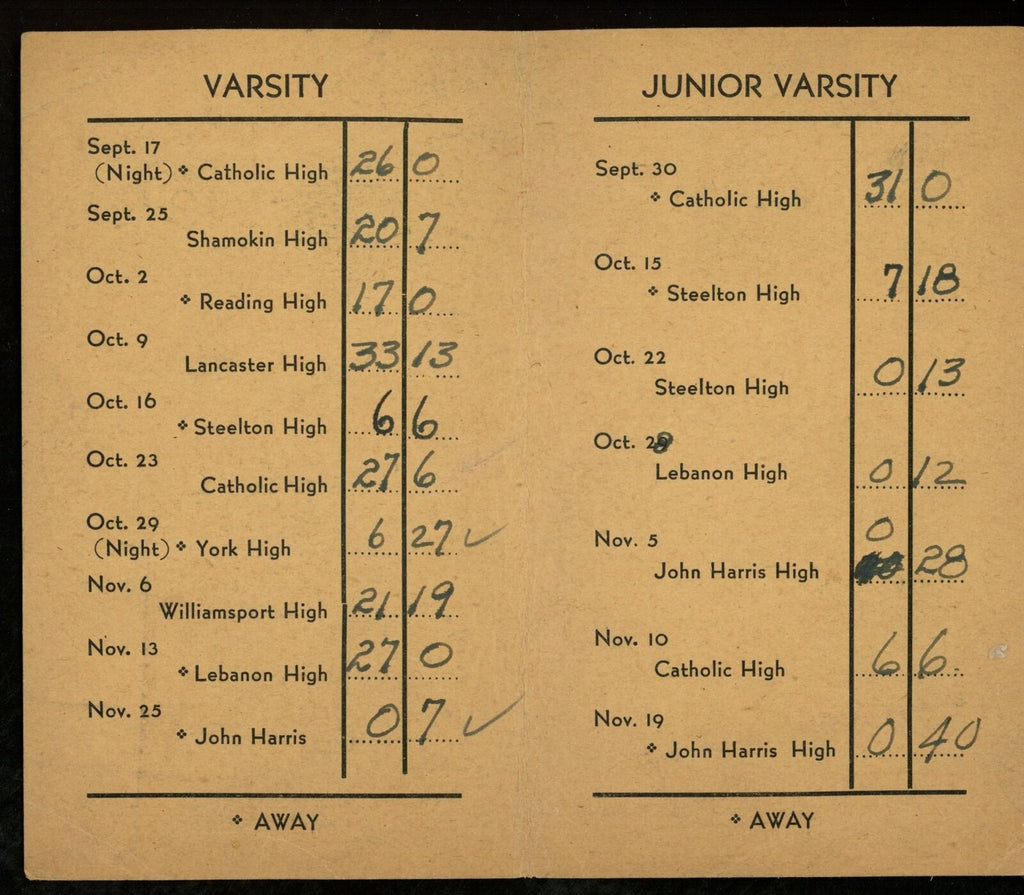 VARSITY
Sept. 17
(Night) ❖ Catholic High 26 0
Sept. 25
Shamokin High 20 7
Oct. 2
❖ Reading High 17 0
Oct. 9
Lancaster High 33 13
Oct. 16
❖ Steelton High 6 6
Oct. 23
Catholic High 27 6
Oct. 29
(Night) ❖ York High 6 27 ✓
Nov. 6
Williamsport High 21 19
Nov. 13
❖ Lebanon High 27 0
Nov. 25
❖ John Harris 0 7 ✓
❖ AWAY
JUNIOR VARSITY
Sept. 30
❖ Catholic High 31 0
Oct. 15
❖ Steelton High 7 18
Oct. 22
Steelton High 0 13
Oct.
Lebanon High 0 12
Nov. 5 0
John Harris High 28
Nov. 10
Catholic High 6 6
Nov. 19
❖ John Harris High 0 40
❖ AWAY